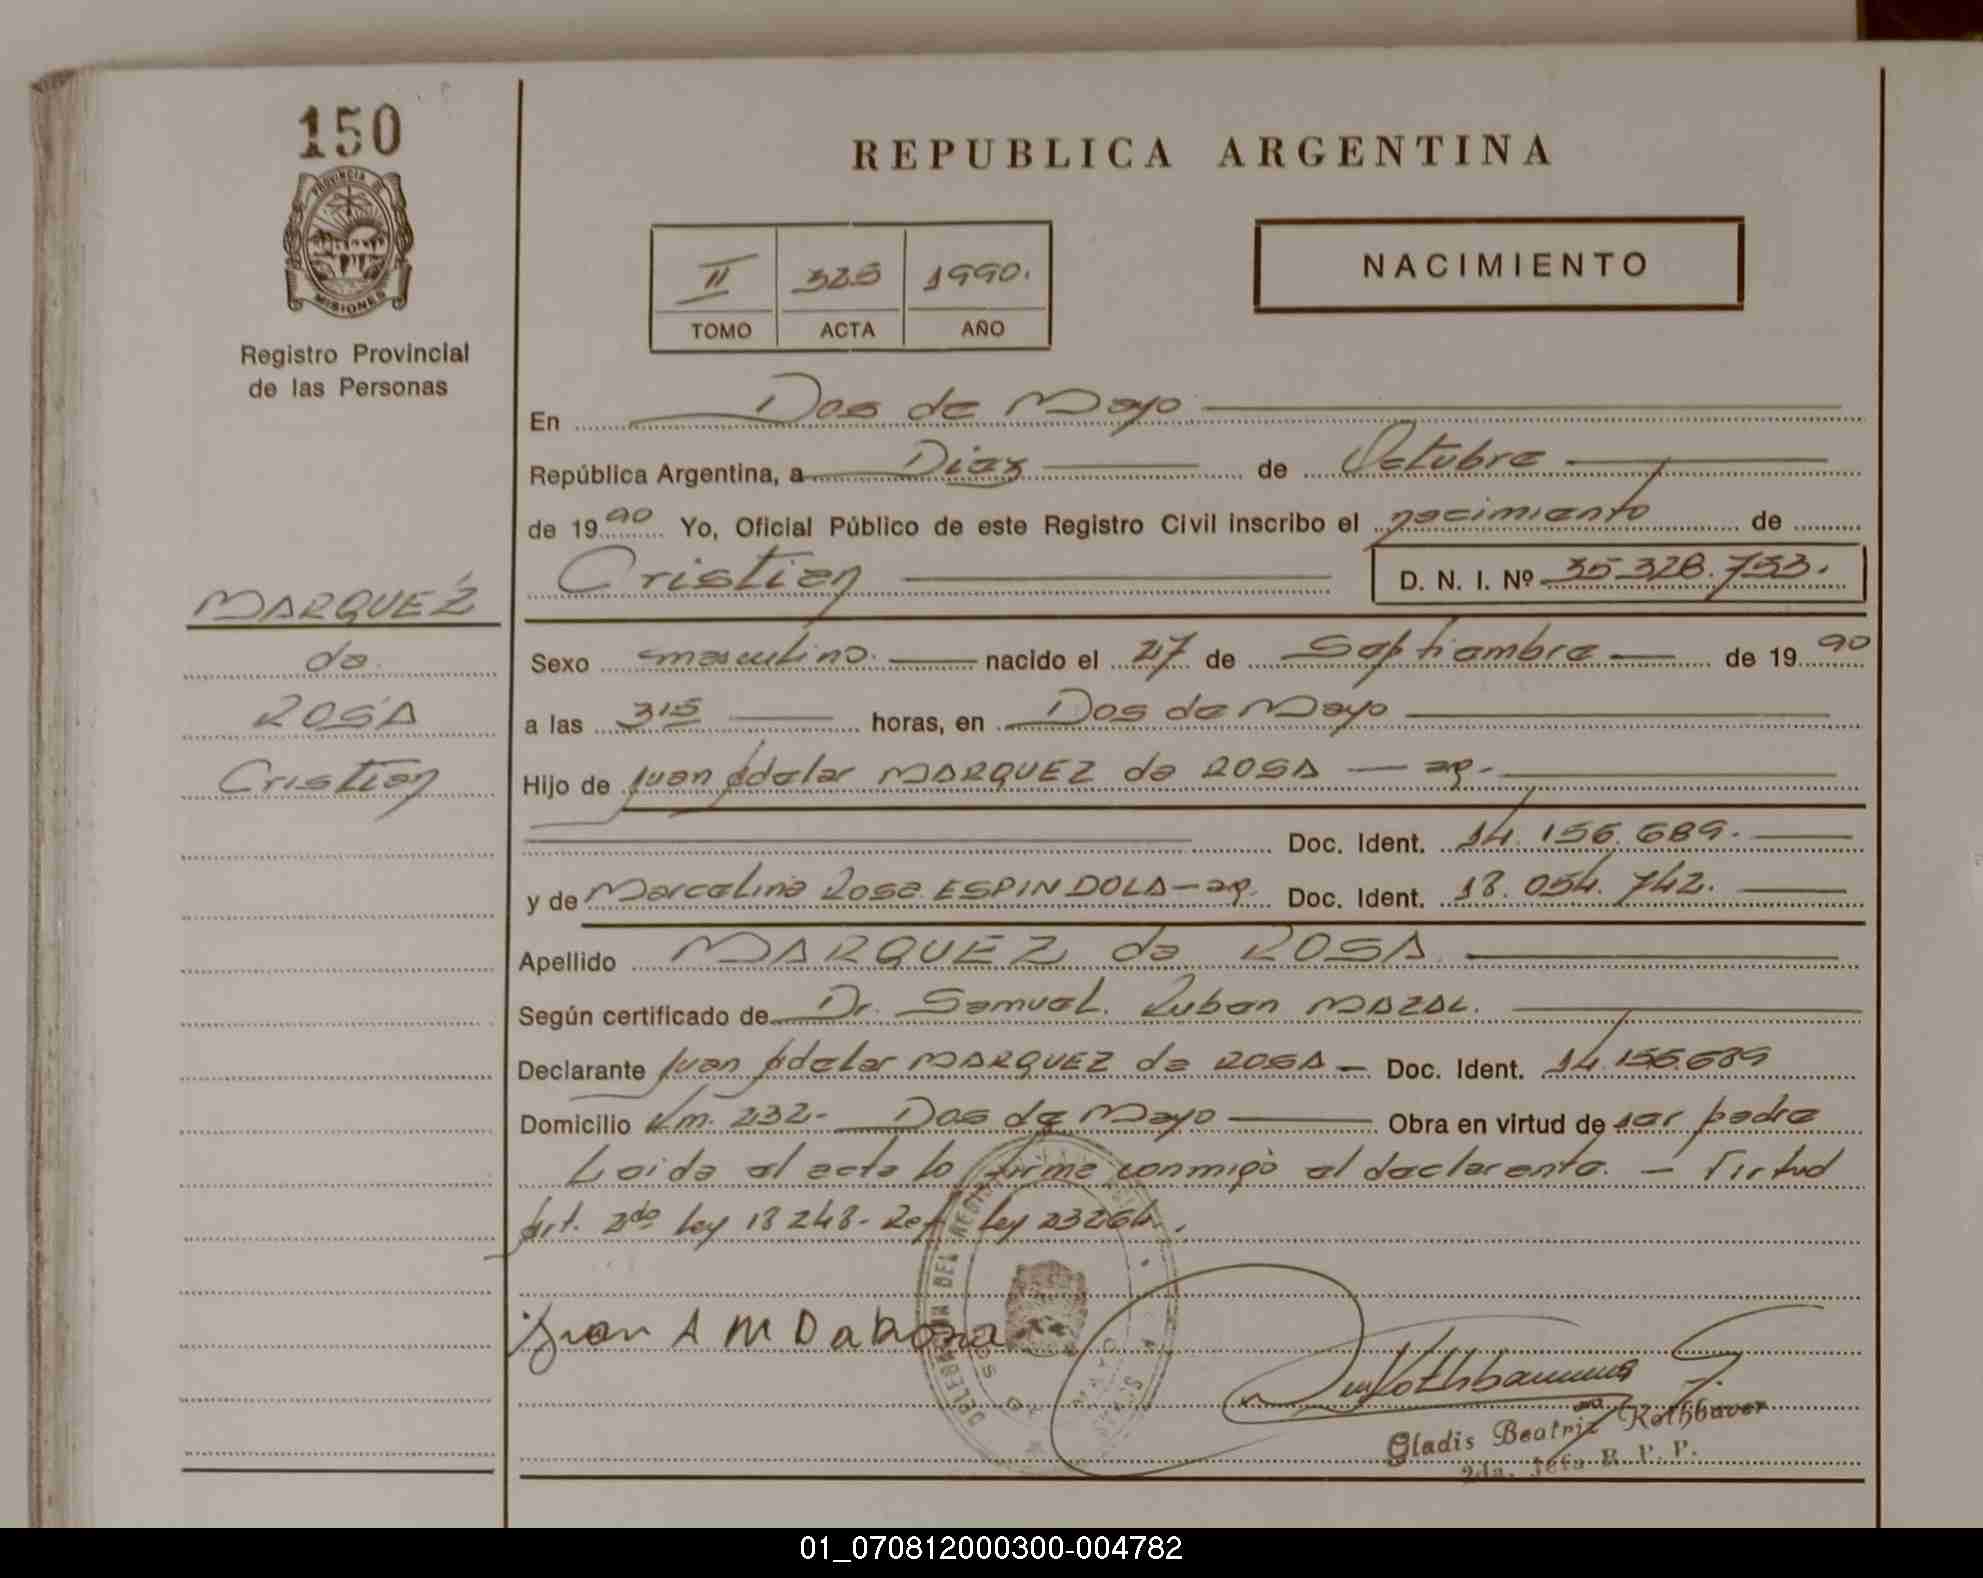 150
PROVINCIA DE
MISIONES
Registro Provincial
de las Personas
MARQUEZ
da
ROSA
Cristian
REPUBLICA ARGENTINA
II 325 1990.
TOMO ACTA AÑO
NACIMIENTO
En Dos de Mayo
República Argentina, a Diez de Octubre
de 1990 Yo, Oficial Público de este Registro Civil inscribo el nacimiento de
Cristian D. N. I. Nº 35.328.753.
Sexo masculino. nacido el 27 de Septiembre de 1990
a las 3,15 horas, en Dos de Mayo
Hijo de Juan Adelar MARQUEZ da ROSA — ar.-
Doc. Ident. 14.156.689.
y de Marcelina Rosa ESPINDOLA - ar. Doc. Ident. 18.054.742.
Apellido MARQUEZ da ROSA
Según certificado de Dr. Samuel Ruben MAZAL.
Declarante Juan Adelar MARQUEZ da ROSA - Doc. Ident. 14.156.689
Domicilio Km. 232- Dos de Mayo Obra en virtud de ser padre
Leida el acta lo firma conmigo el declarante. - Virtud
Art. 2do ley 18248- Ref ley 23264.
DELEGACION DEL REGISTRO
DOS DE MAYO
Juan A M Da Rosa
Gladis Beatriz Rothbauer
2da. Jefa R. P. P.
01_070812000300-004782